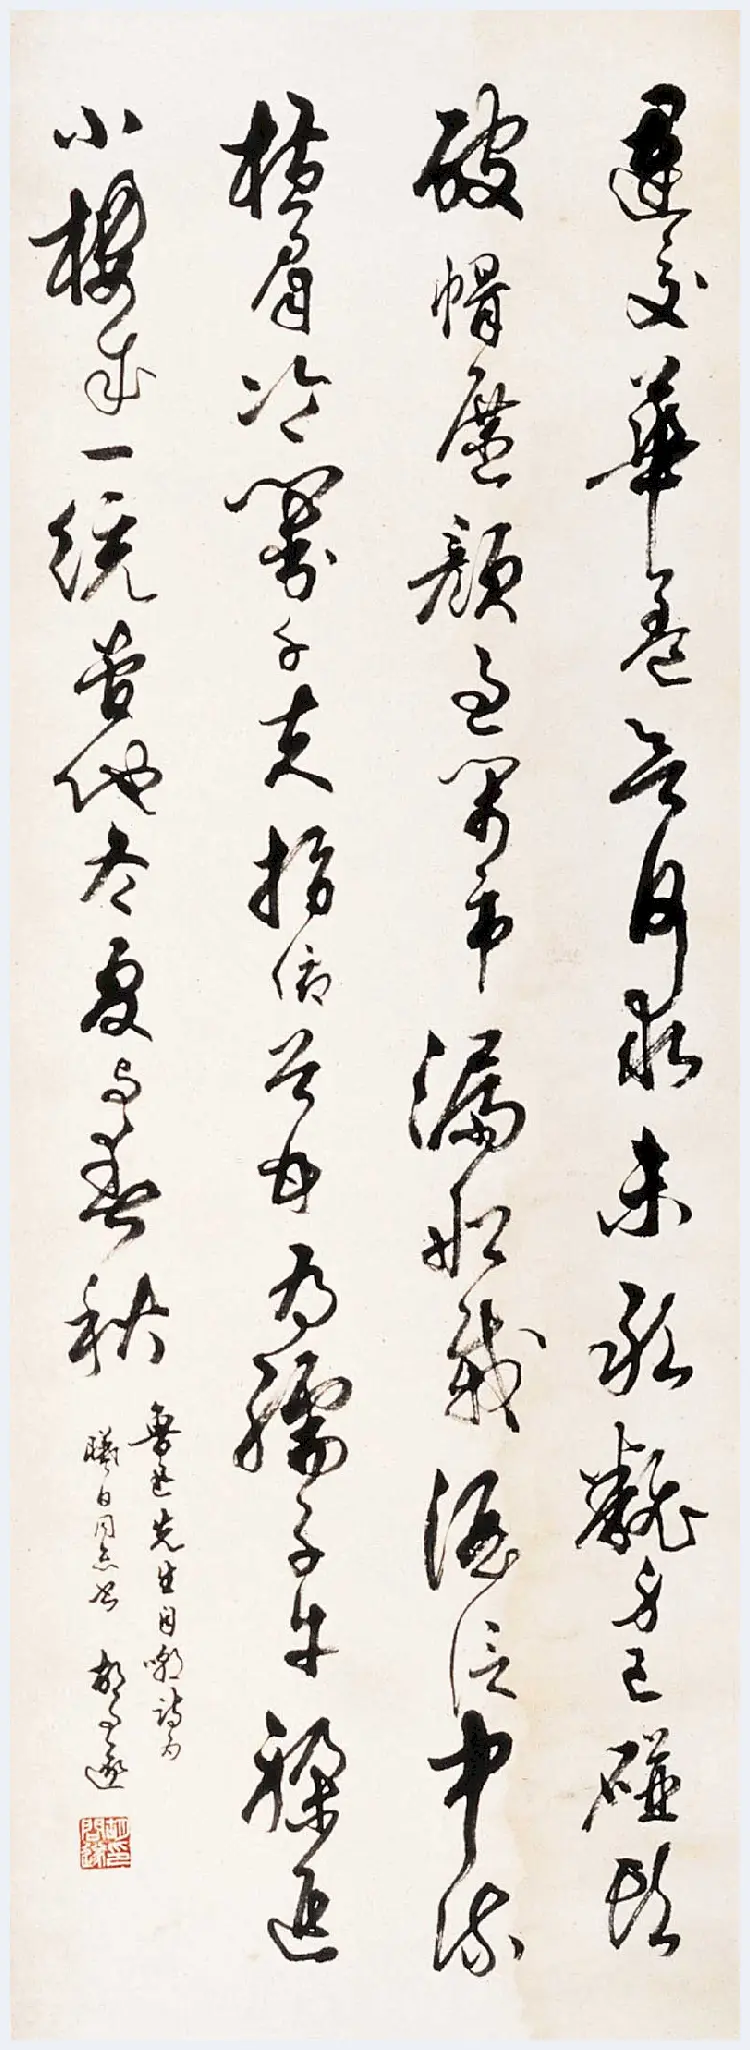 運交華蓋欲何求未敢翻身已碰頭
破帽遮顏過鬧市漏船載酒泛中流
橫眉冷對千夫指俯首甘為孺子牛躲進
小樓成一統管他冬夏與春秋
魯迅先生自嘲詩為
曦白同志書 胡問遂
胡印問遂